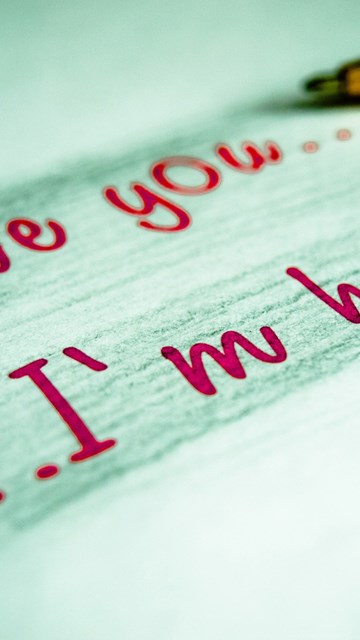 ve you...
...I'm h